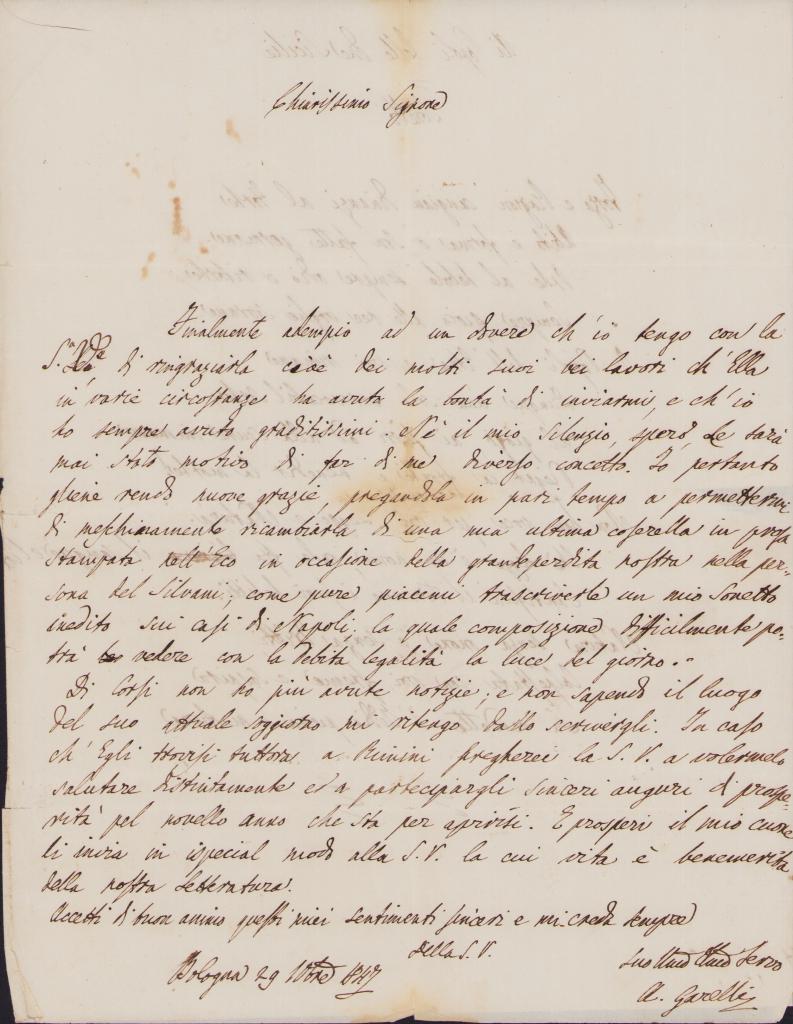 Chiarissimo Signore
Finalmente adempio ad un dovere ch'io tengo con la
S. di ringraziarla cioè dei molti suoi bei lavori ch'Ella
in varie circostanze ha avuta la bontà di inviarmi, e ch'io
ho sempre avuto graditissimi. Nè il mio silenzio, spero, Le sarà
mai stato motivo di far di me diverso concetto. Io pertanto
gliene rendo nuove grazie, pregandola in pari tempo a permettermi
di meschinamente ricambiarla di una mia ultima coserella in prosa
stampata nell'Eco in occasione della grande perdita nostra nella per-
sona del Silvani; come pure piacemi trascriverle un mio Sonetto
inedito sui casi di Napoli, la quale composizione difficilmente po-
trà vedere con la debita legalità la luce del giorno.
Di Corsi non ho più avute notizie; e non sapendo il luogo
del suo attuale soggiorno mi ritengo dallo scrivergli. In caso
ch'Egli trovisi tuttora a Rimini pregherei la S. V. a volermelo
salutare distintamente ed a partecipargli sinceri auguri di prospe-
rità pel novello anno che sta per aprirsi. E prosperi il mio cuore
li invia in ispecial modo alla S. V. la cui vita è benemerita
della nostra letteratura.
Accetti di buon animo questi miei sentimenti sinceri e mi creda sempre
della S. V.
Bologna 29 1847
Servo
A. Garelli